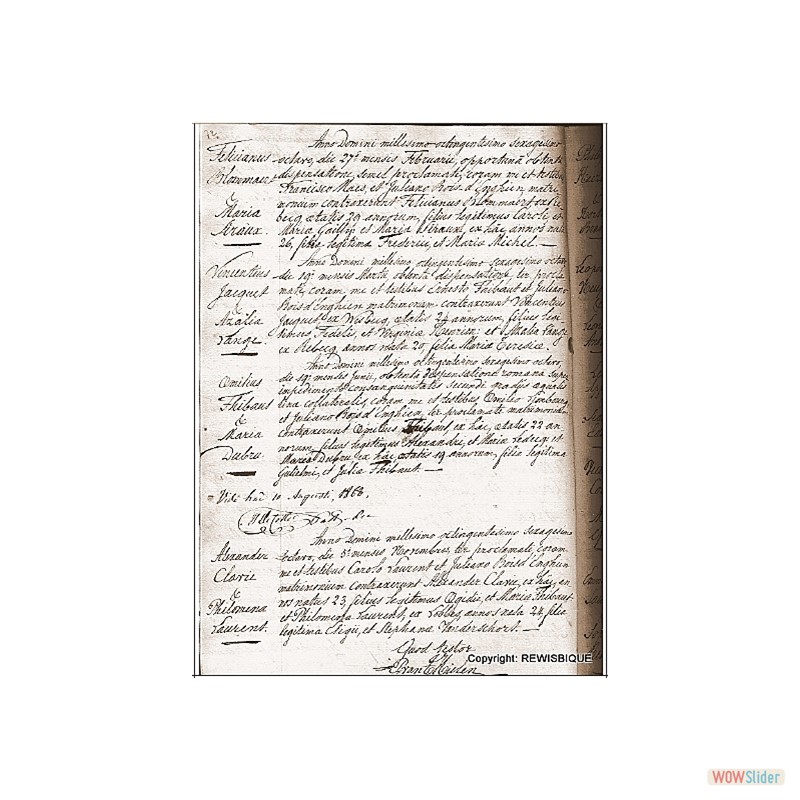 12.
Anno Domini millesimo octingentesimo sexagesimo
Felicianus octavo, die 27ª mensis Februarii, opportuna obtenta
Blommaert dispensatione, semel proclamati, coram me et testibus
Francisco Maes, et Juliano Bois d'Enghien matri-
& monium contraxerunt Felicianus Blommaert ex
Maria becq, ætatis 29 annorum, filius legitimus Caroli, et
Maria Gaillÿ et Maria Straux, ex hac, annos nata
Straux. 26, filia legitima Frederici, et Maria Michel. —
Anno Domini millesimo octingentesimo sexagesimo octavo,
Vincentius die 19ª mensis Martii, obtenta dispensatione, ter procla-
Jacquet mati, coram me et testibus Ernesto Thibaut et Juliano
& Bois d'Enghien matrimonium contraxerunt Vincentius
Azalia Jacquet, ex Wisbecq, ætatis 24 annorum, filius legi-
Vange. timus, Fidelis, et Virginia et Azalia Vange
ex Rebecq annos nata 20, filia Maria Teresia.
Anno Domini millesimo octingentesimo sexagesimo octavo,
Emilius die 19ª mensis Junii, obtenta dispensatione romana super
impedimento consanguinitatis secundi gradus æqualis
Thibaut linea collateralis, coram me et testibus Emilio
& et Juliano Bois d'Enghien, ter proclamati matrimonium
Maria contraxerunt Emilius Thibaut, ex hac, ætatis 22 an-
Dubru. norum, filius legitimus Alexandri, et Maria Ledecq et
Maria Dubru ex hac ætatis 19 annorum, filia legitima
Gulielmi, et Julia Thibaut. —
Vidi hac 10 Augusti, 1868.
Anno Domini millesimo octingentesimo sexagesimo
Alexander octavo, die 5ª mensis Novembris, ter proclamati, coram
Clavie me et testibus Carolo Laurent et Juliano Bois d'Enghien
& matrimonium contraxerunt Alexander Clavie, ex hac, an-
nos natus 23, filius legitimus Egidii, et Maria Thibaut
Philomena et Philomena Laurent, ex annos nata 24, filia
Laurent. legitima Eligii, et Stephana Vanderschort. —
Quod testor
Copyright: REWISBIQUE
WOWSlider